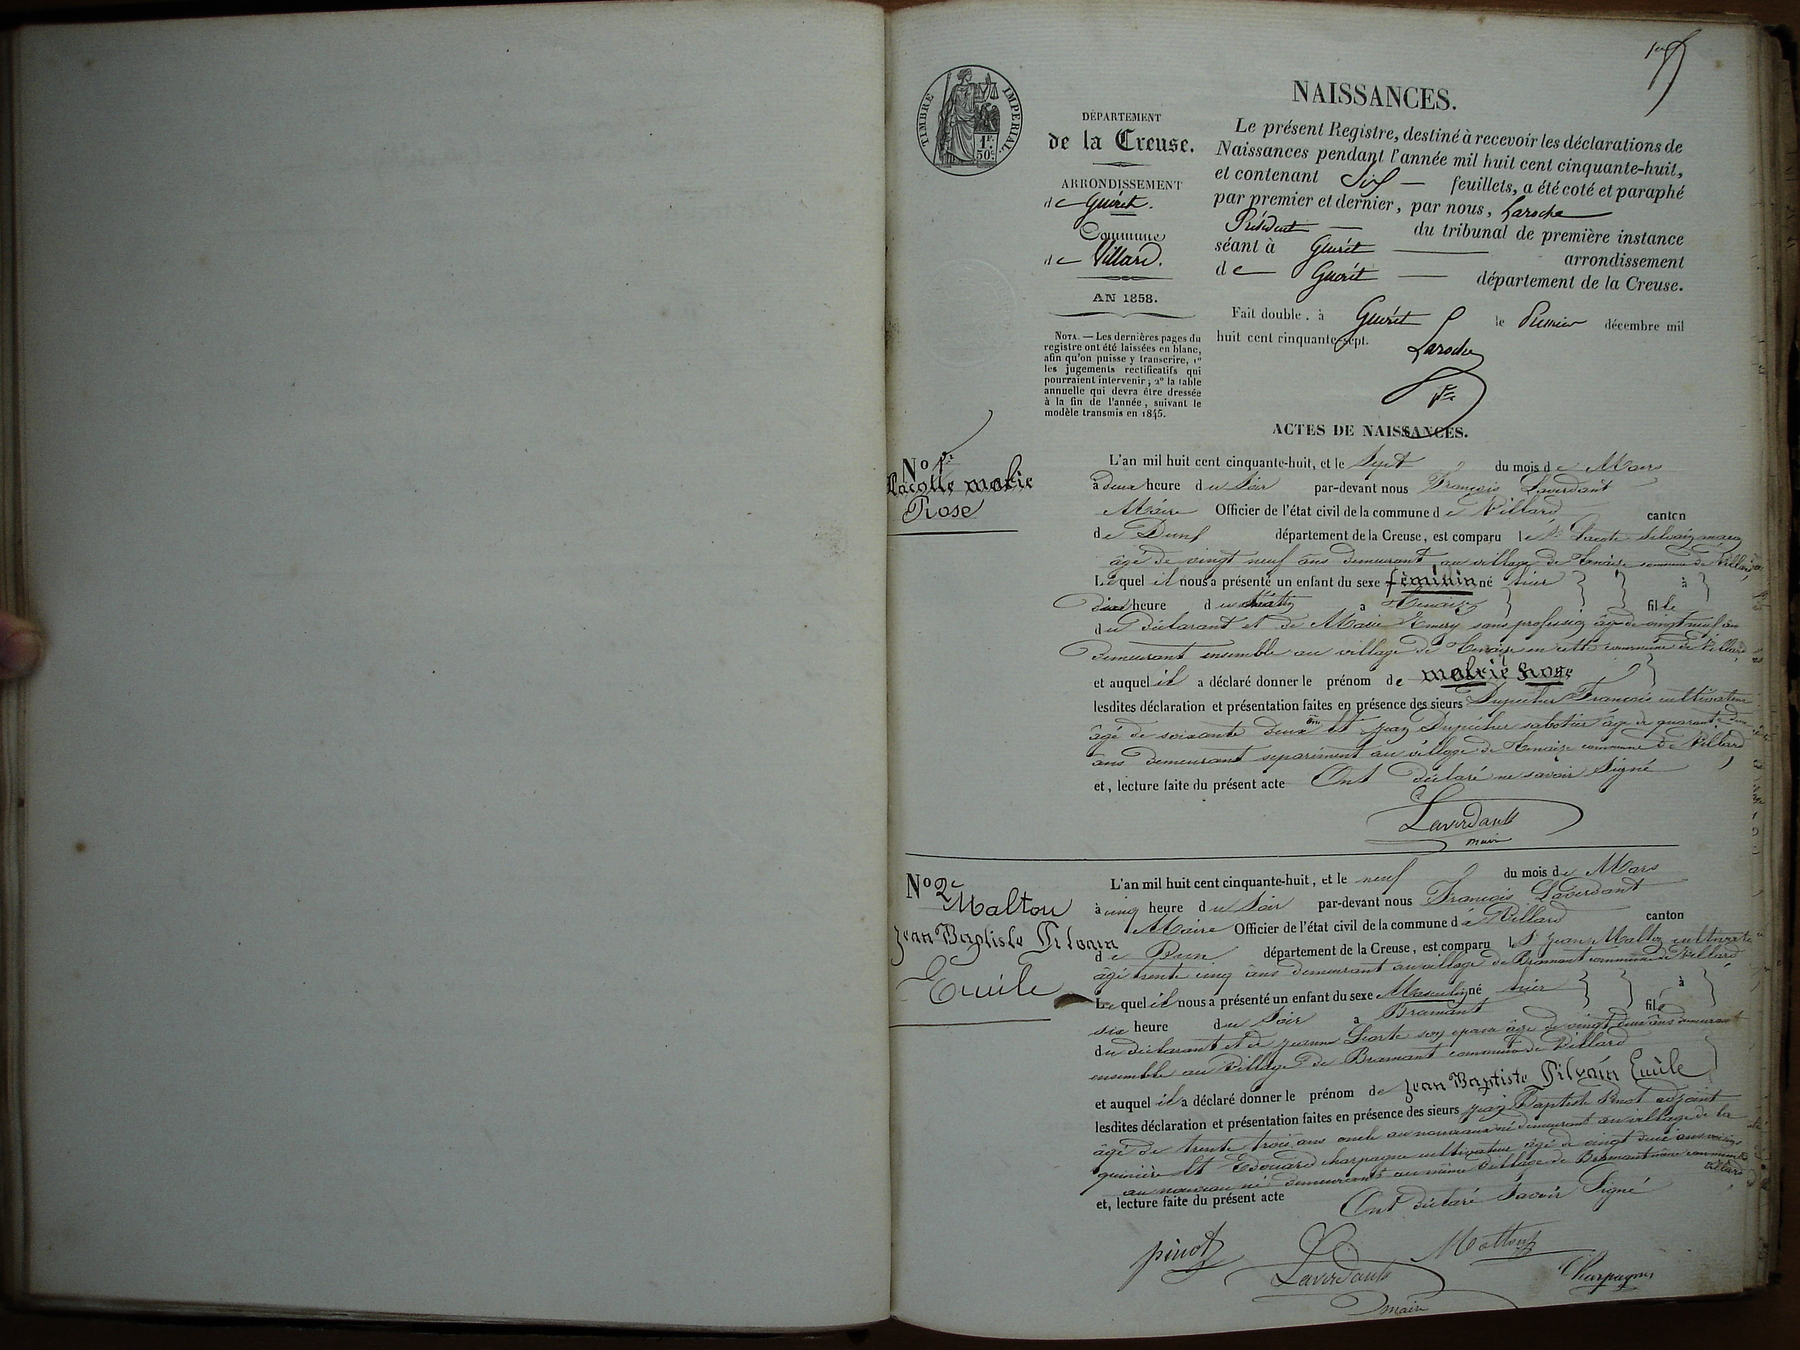 1er
NAISSANCES.
TIMBRE IMPÉRIAL.
1F. 50c.
DÉPARTEMENT
de la Creuse.
ARRONDISSEMENT
de Guéret.
Commune
de Villard.
AN 1858.
NOTA. — Les dernières pages du
registre ont été laissées en blanc,
afin qu'on puisse y transcrire, 1°
les jugements rectificatifs qui
pourraient intervenir; 2° la table
annuelle qui devra être dressée
à la fin de l'année, suivant le
modèle transmis en 1845.
Le présent Registre, destiné à recevoir les déclarations de
Naissances pendant l'année mil huit cent cinquante-huit,
et contenant Six feuillets, a été coté et paraphé
par premier et dernier, par nous, Laroche
Président du tribunal de première instance
séant à Guéret arrondissement
de Guéret département de la Creuse.
Fait double, à Guéret le Premier décembre mil
huit cent cinquante-sept.
Laroche
ACTES DE NAISSANCES.
No 1er
marie
Rose
L'an mil huit cent cinquante-huit, et le Sept du mois de Mars
à deux heure du Soir par-devant nous François Laverdant
Maire Officier de l'état civil de la commune de Villard canton
de Dun département de la Creuse, est comparu le Sr
âgé de vingt neuf ans demeurant au village de commune de Villard
Lequel il nous a présenté un enfant du sexe féminin né hier à
heure du matin a fille
du déclarant et de Marie Emery sans profession âgé de vingt neuf an
demeurant ensemble au village de en cette commune de Villard
et auquel il a déclaré donner le prénom de marie Rose
lesdites déclaration et présentation faites en présence des sieurs Dupeicher François cultivateur
âgé de soixante deux ans et jean Dupeicher sabotier âgé de quarante deux
ans demeurant séparément au village de commune de Villard
et, lecture faite du présent acte Ont déclaré ne savoir Signé
Laverdant
maire
No 2e
Maltou
jean Baptiste Silvain
Emile
L'an mil huit cent cinquante-huit, et le neuf du mois de Mars
à cinq heure du Soir par-devant nous François Laverdant
Maire Officier de l'état civil de la commune de Villard canton
de Dun département de la Creuse, est comparu le Sr jean Maltou cultivateur
âgé trente cinq ans demeurant au village de Bramant commune de Villard
Lequel il nous a présenté un enfant du sexe Masculin né hier à
six heure du Soir a Bramant fils
du déclarant et de jeanne son épouse âgé de vingt deux ans demeurant
ensemble au village de Bramant commune de Villard
et auquel il a déclaré donner le prénom de jean Baptiste Silvain Emile
lesdites déclaration et présentation faites en présence des sieurs jean Baptiste Pinot adjoint
âgé de trente trois ans oncle au nouveau né demeurant au village de la
et Edouard charpagne cultivateur âgé de vingt deux ans voisin
au nouveau né demeurant au même village de Bramant même commune de Villard
et, lecture faite du présent acte Ont déclaré Savoir Signé
pinot
Laverdant
maire
Maltou
Charpagne